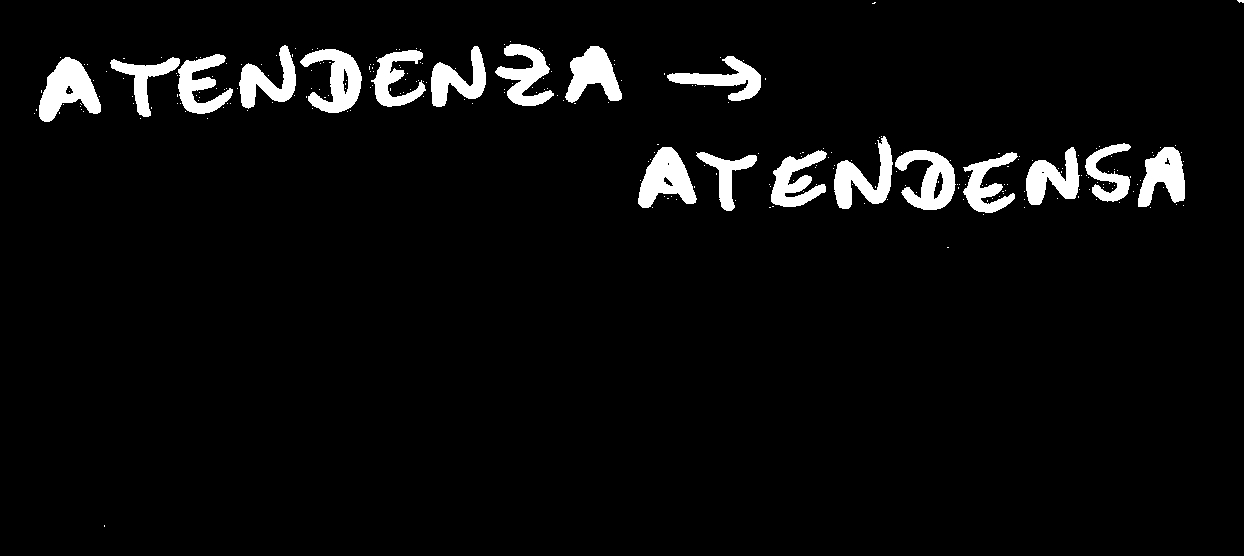 ATENDENZA →
ATENDENSA